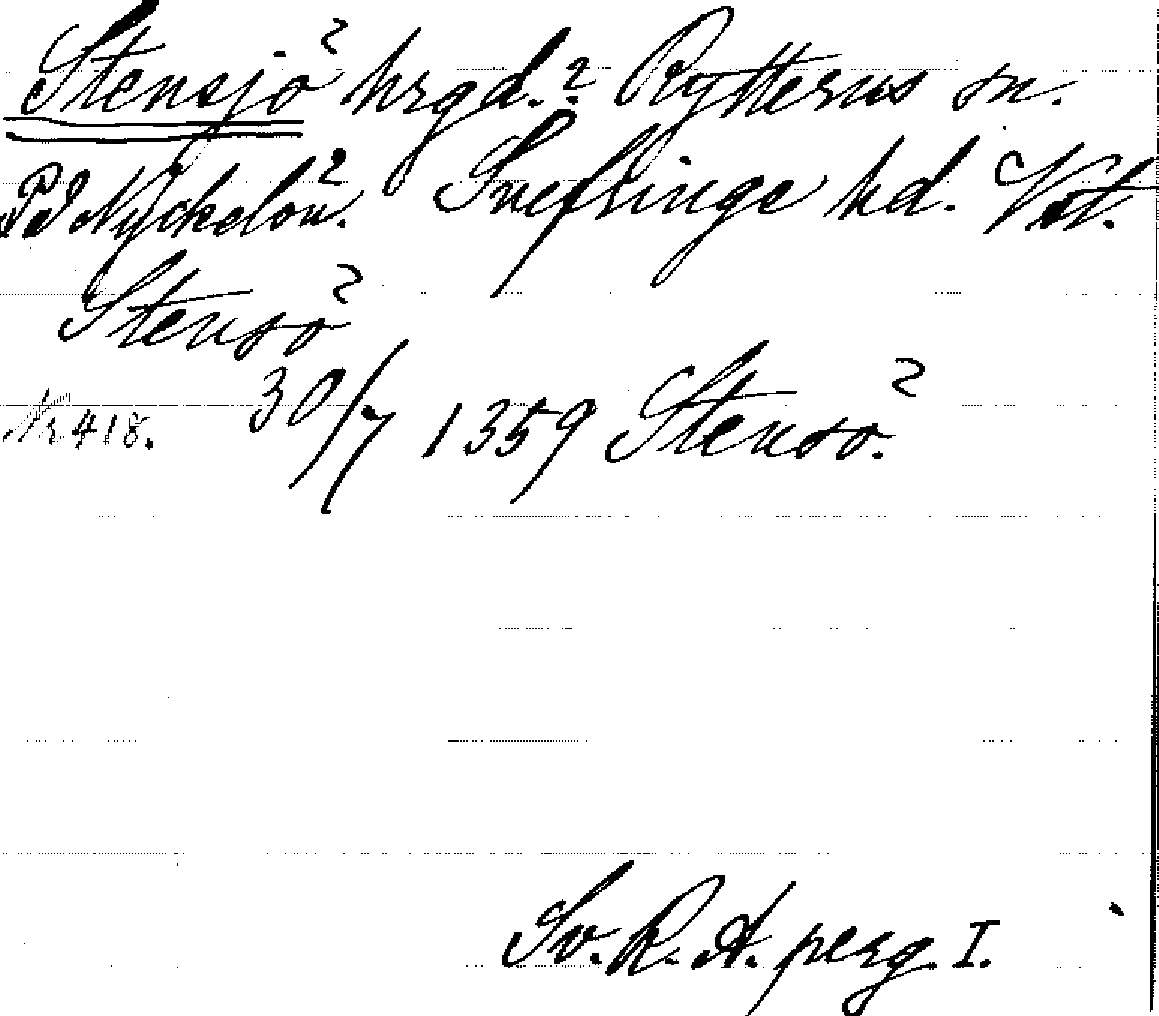 Stensjö hrgd.? Rytterus sn.
På Nyckelön. Snefringe hd. Vst.
Stensö
Nr 418. 30/7 1359 Stensö.
Sv. R. A. perg. I.